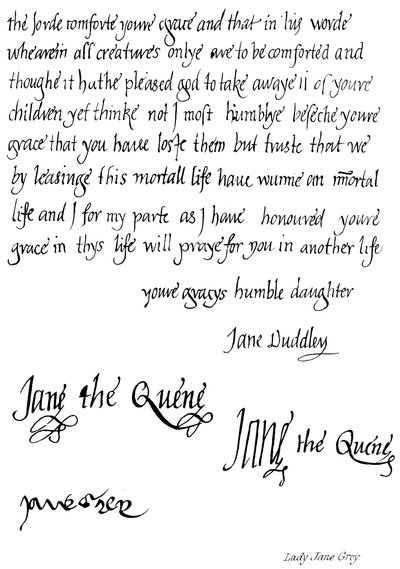 the lorde comforte youre grace and that in his worde
whearein all creatures onlye are to be comforted and
thoughe it hathe pleased god to take awaye ii of youre
children yet thinke not I most humblye beseche youre
grace that you have loste them but truste that we
by leasinge this mortall life have wunne an immortal
life and I for my parte as I have honoured youre
grace in thys life will praye for you in another life
youre gracys humble daughter
Jane Duddley
Jane the Quene
Jane the Quene
Lady Jane Grey.